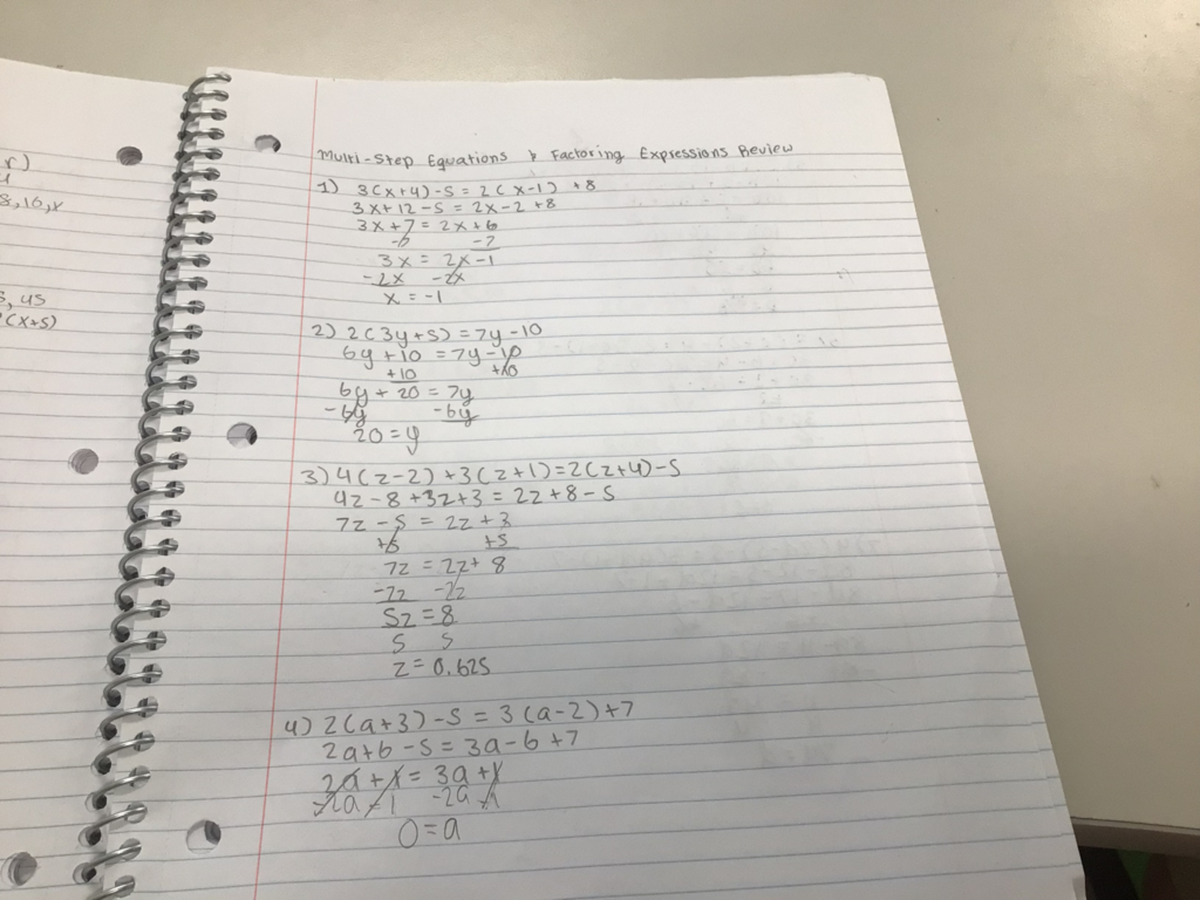 r)
4
8,16,x
5, 45
(x+5)
Multi-Step Equations & Factoring Expressions Review
1) 3(x+4)-5=2(x-1) +8
3x+12-5=2x-2+8
3x+7=2x+6
-7 -7
3x = 2x-1
-2x -2x
x = -1
2) 2(3y+5)=7y-10
6y+10=7y-10
+10 +10
6y+20=7y
-6y -6y
20=y
3) 4(z-2)+3(z+1)=2(z+4)-5
4z-8+3z+3=2z+8-5
7z-5=2z+3
+5 +5
7z=2z+8
-7z -2z
5z=8
5 5
z=0.625
4) 2(a+3)-5=3(a-2)+7
2a+6-5=3a-6+7
2a+1=3a+1
-2a-1 -2a-1
0=a